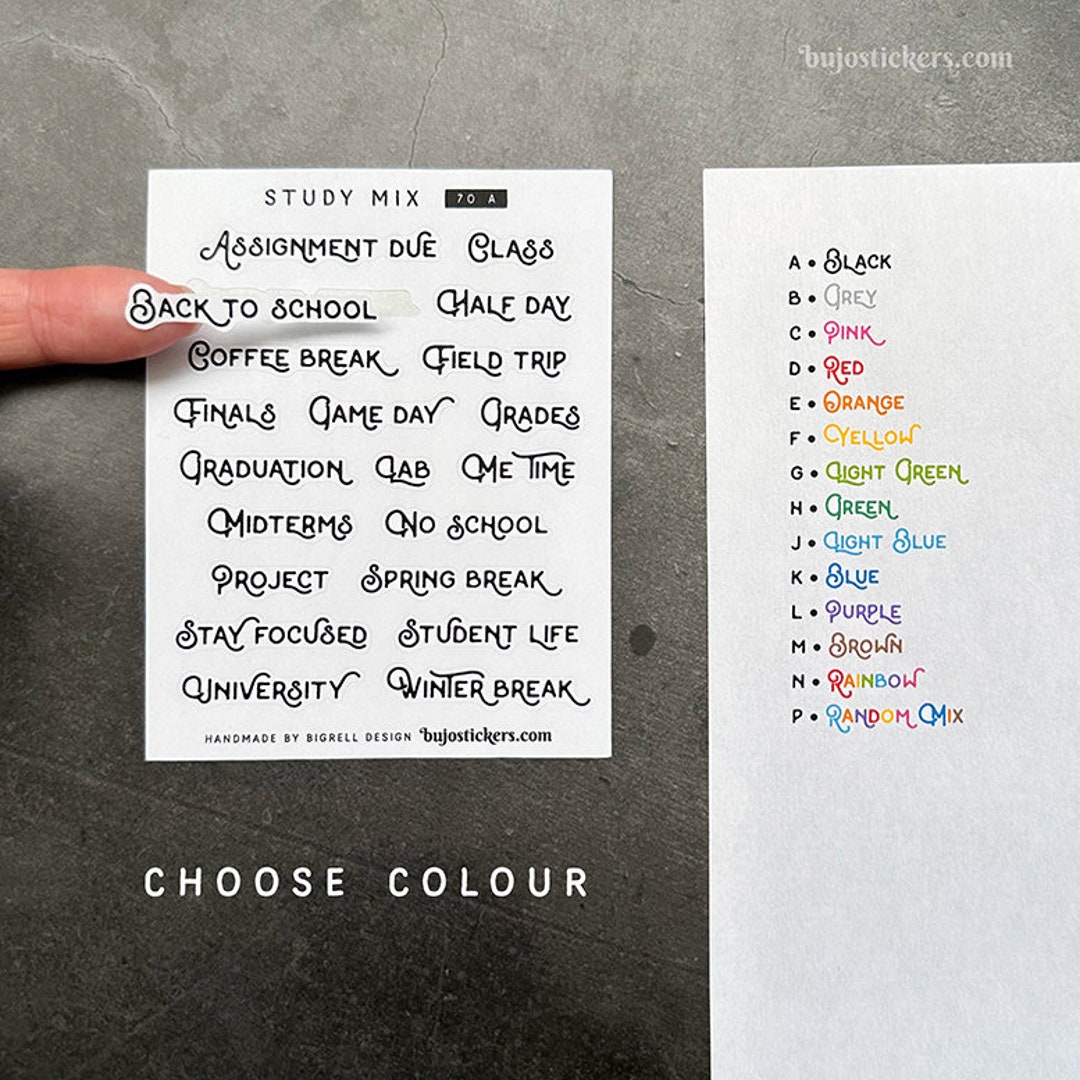 bujostickers.com
STUDY MIX 70 A
ASSIGNMENT DUE CLASS
BACK TO SCHOOL HALF DAY
COFFEE BREAK FIELD TRIP
FINALS GAME DAY GRADES
GRADUATION LAB ME TIME
MIDTERMS NO SCHOOL
PROJECT SPRING BREAK
STAY FOCUSED STUDENT LIFE
UNIVERSITY WINTER BREAK
HANDMADE BY BIGRELL DESIGN bujostickers.com
A • BLACK
B • GREY
C • PINK
D • RED
E • ORANGE
F • YELLOW
G • LIGHT GREEN
H • GREEN
J • LIGHT BLUE
K • BLUE
L • PURPLE
M • BROWN
N • RAINBOW
P • RANDOM MIX
CHOOSE COLOUR